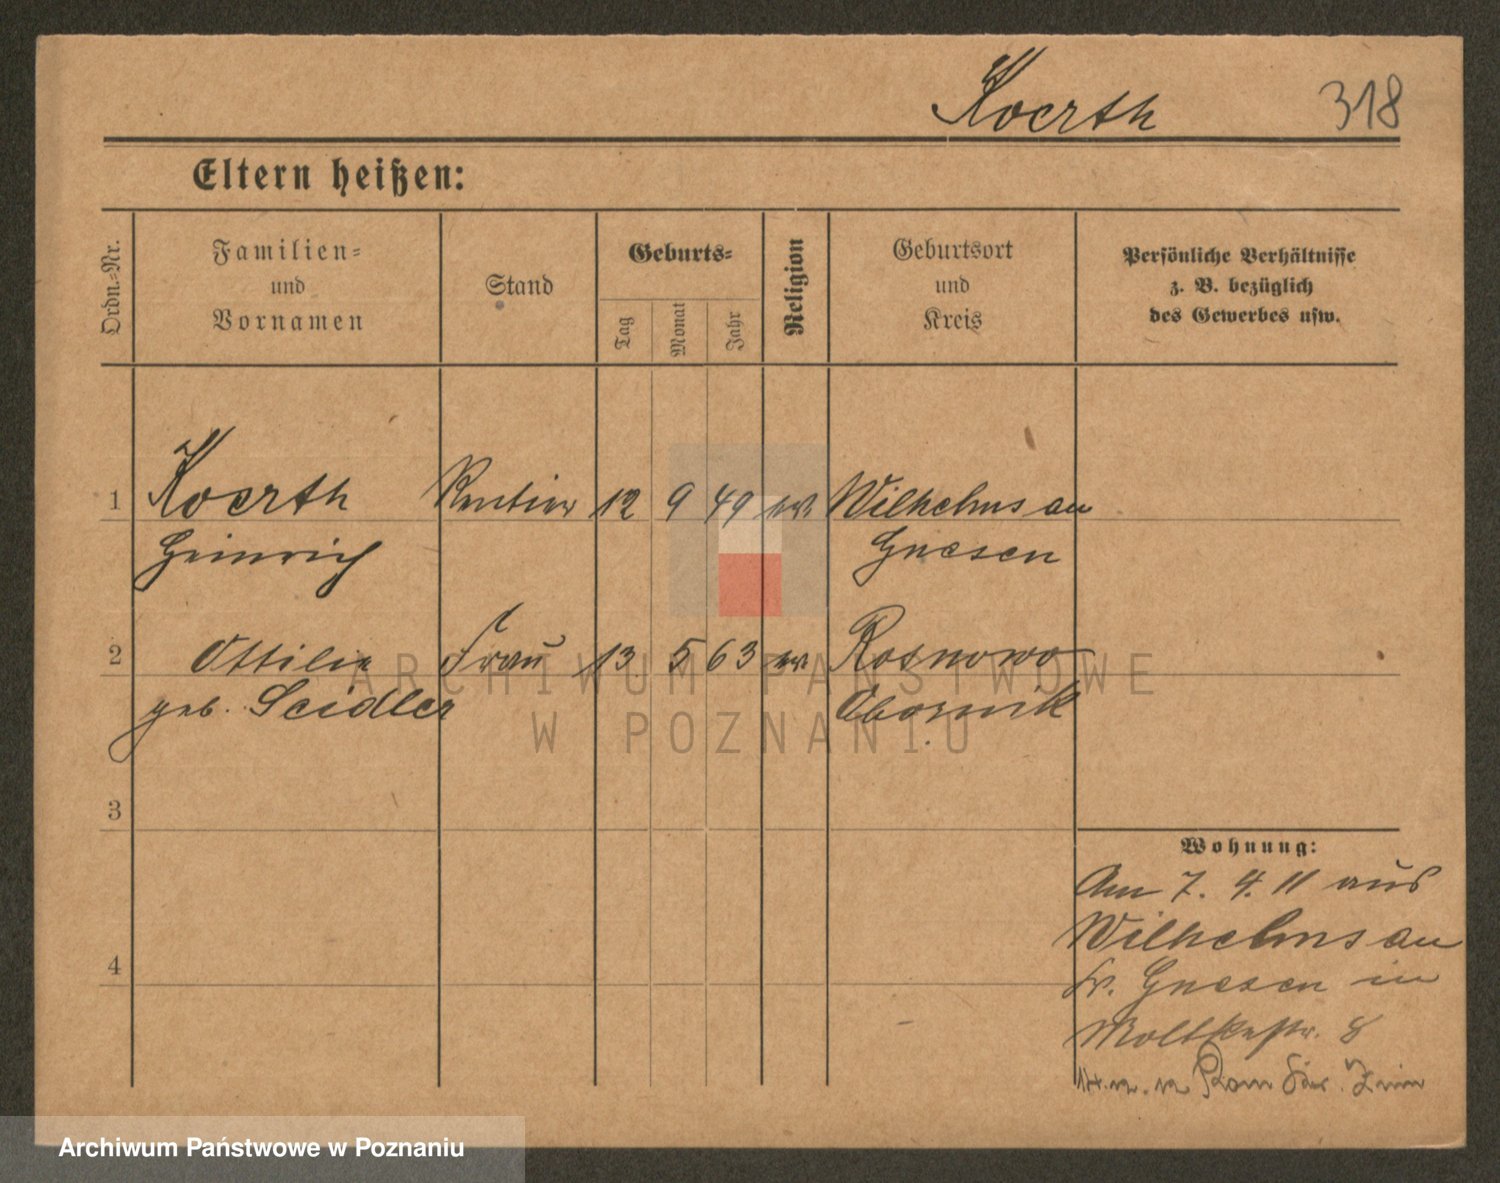 Koerth 318
Eltern heißen:
Ordn.=Nr.
Familien=
und
Vornamen
Stand
Geburts=
Tag
Monat
Jahr
Religion
Geburtsort
und
Kreis
Persönliche Verhältnisse
z. B. bezüglich
des Gewerbes usw.
1 Koerth Rentier 12 9 49 ev. Wilhelmsau
Heinrich Gnesen
2 Ottilie Frau 13 5 63 ev Rosnowo
geb. Seidler Obornik
3
Wohnung:
Am 7. 4. 11 aus
Wilhelmsau
Kr. Gnesen in
4
Moltkestr. 8
ARCHIWUM PAŃSTWOWE
W POZNANIU
Archiwum Państwowe w Poznaniu